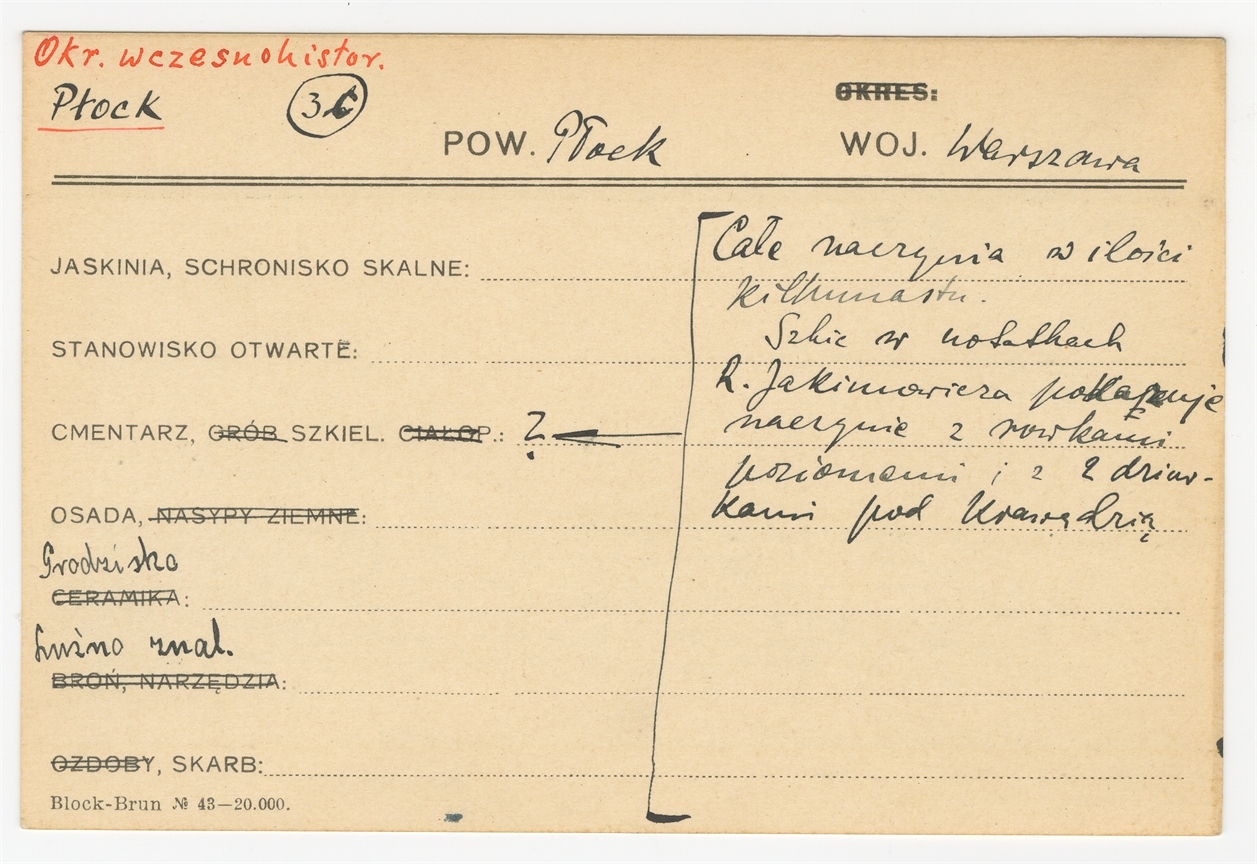 Okr. wczesnohistor.
Płock 3C OKRES:
POW. Płock WOJ. Warszawa
Całe naczynia w ilości
JASKINIA, SCHRONISKO SKALNE:
kilkunastu.
Szkic w notatkach
STANOWISKO OTWARTE:
R. Jakimowicza pokazuje
naczynie z rowkami
CMENTARZ, GRÓB SZKIEL. CIAŁOP.: ?
poziomemi i z 2 dziur-
kami pod krawędzią
OSADA, NASYPY ZIEMNE:
Grodzisko
CERAMIKA:
Luźno znal.
BROŃ, NARZĘDZIA:
OZDOBY, SKARB:
Block-Brun № 43—20.000.